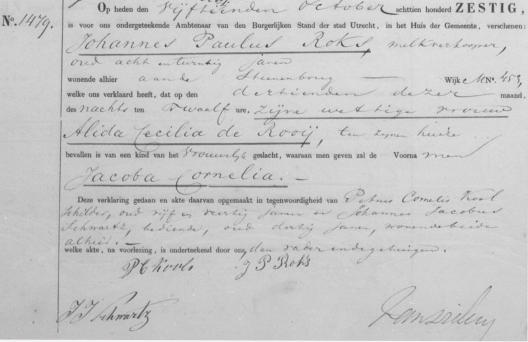 Op heden den Vijftienden October achttien honderd ZESTIG,
No. 1479.
is voor ons ondergeteekende Ambtenaar van den Burgerlijken Stand der stad Utrecht, in het Huis der Gemeente, verschenen:
Johannes Paulus Roks, melkverkooper,
oud acht en twintig jaren
wonende alhier aan de Steenenbrug — Wijk M No. 453,
welke ons verklaard heeft, dat op den dertienden dezer maand,
des nachts ten twaalf ure, zijne wettige vrouw
Alida Cecilia de Rooij, ten zijnen huize
bevallen is van een kind van het Vrouwelijk geslacht, waaraan men geven zal de Voorna men
Jacoba Cornelia. —
Deze verklaring gedaan en akte daarvan opgemaakt in tegenwoordigheid van Petrus Cornelis Kool
schilder, oud vijf en veertig jaren en Johannes Jacobus
Schwartz, bediende, oud dertig jaren, wonende beide
alhier. —
welke akte, na voorlezing, is onderteekend door ons, den vader en de getuigen.
P C Kools J P Roks
J J Schwartz